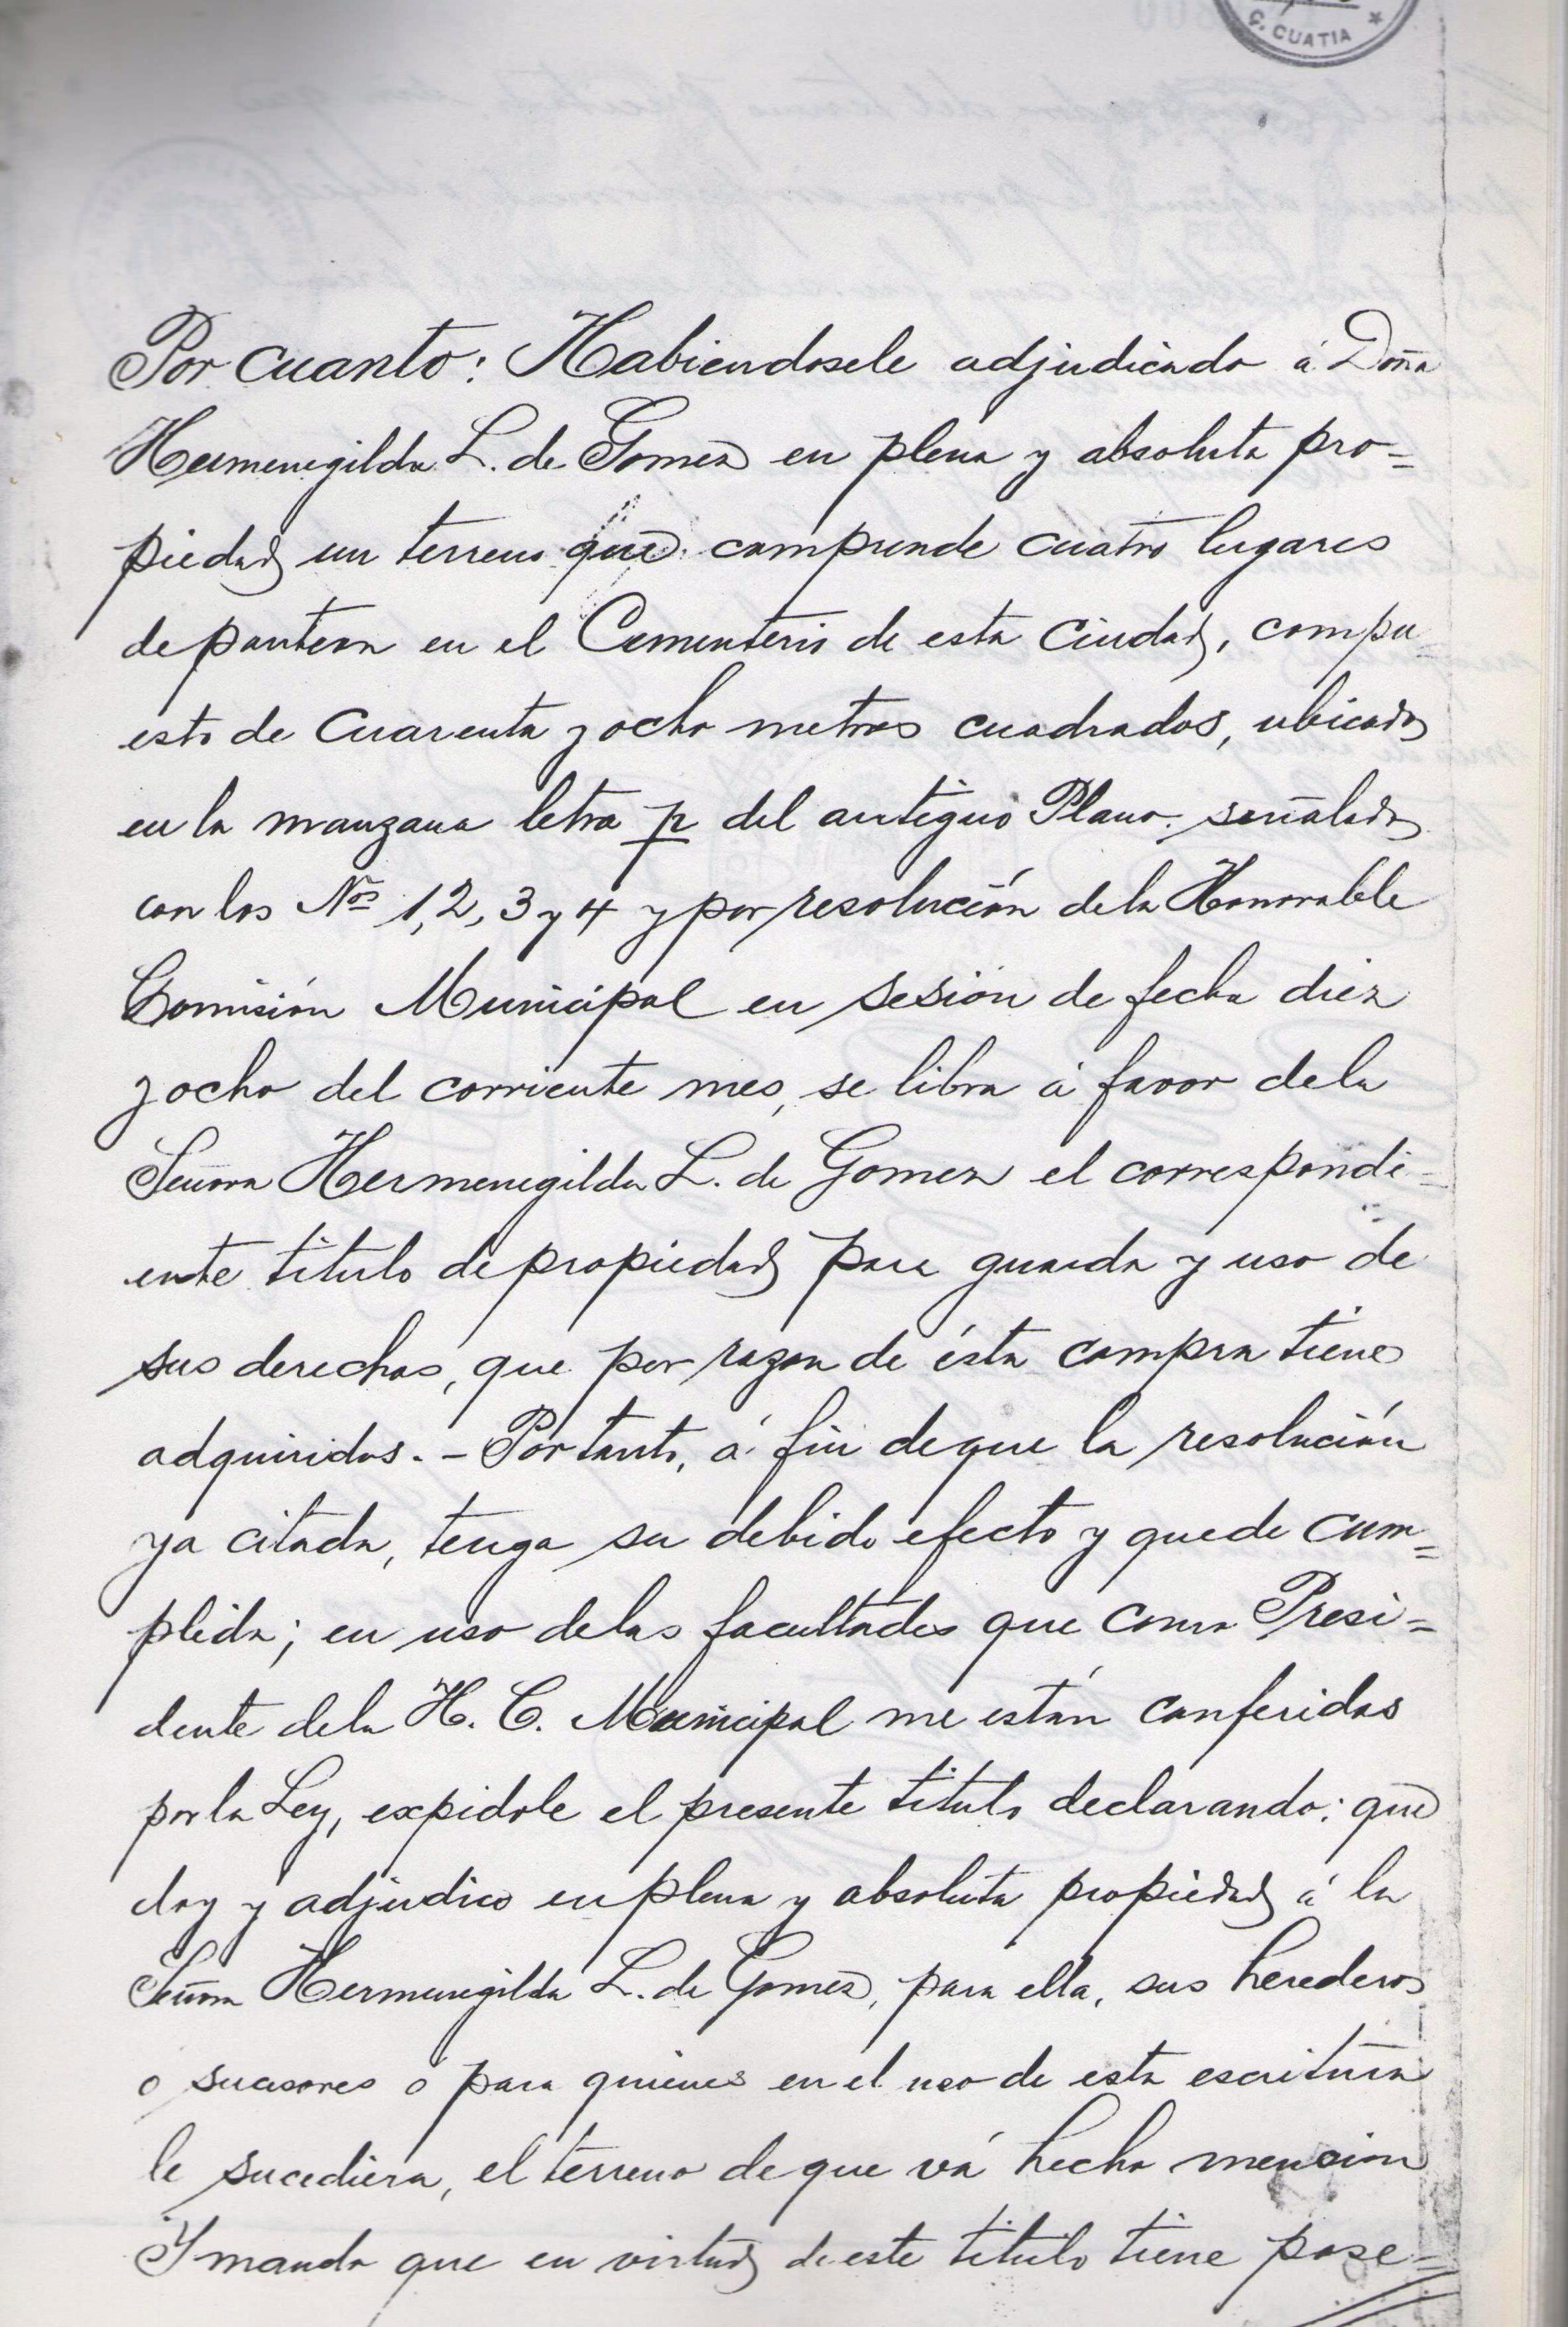 C. CUATIA *
Por cuanto: Habiendosele adjudicado á Doña
Hermenegilda L. de Gomez en plena y absoluta pro=
piedad un terreno que comprende cuatro lugares
de panteon en el Cementerio de esta Ciudad, compu=
esto de cuarenta y ocho metros cuadrados, ubicado
en la manzana letra p del antiguo Plano señalado
con los Nos 1, 2, 3 y 4 y por resolución dela Honorable
Comisión Municipal en sesion de fecha diez
y ocho del corriente mes, se libra á favor dela
Señora Hermenegilda L. de Gomez el correspondi=
ente titulo de propiedad para guarda y uso de
sus derechos, que por razon de ésta compra tiene
adquiridos. - Por tanto, á fin deque la resolución
ya citada, tenga su debido efecto y quede cum=
plida; en uso delas facultades que como Presi=
dente dela H. C. Municipal me están conferidas
por la Ley, expidole el presente titulo declarando: que
doy y adjudico en plena y absoluta propiedad á la
Señora Hermenegilda L. de Gomez, para ella, sus herederos
o sucesores ó para quienes en el uso de esta escritura
le sucediera, el terreno de que vá hecho mencion
Y mando que en virtud de este titulo tiene pose=